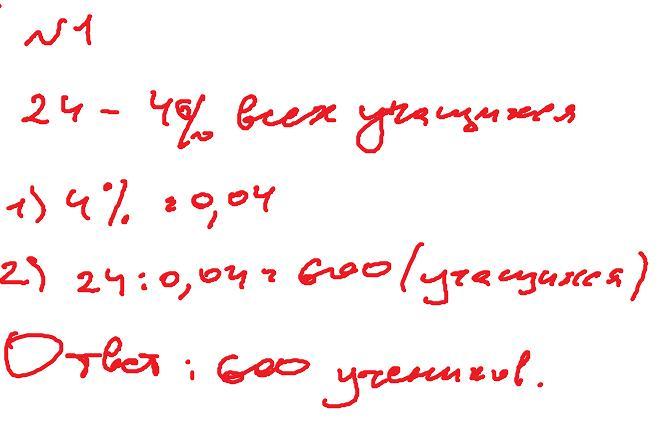 №1
24 - 4% всех учащихся
1) 4% = 0,04
2) 24 : 0,04 = 600 (учащихся)
Ответ : 600 учеников.